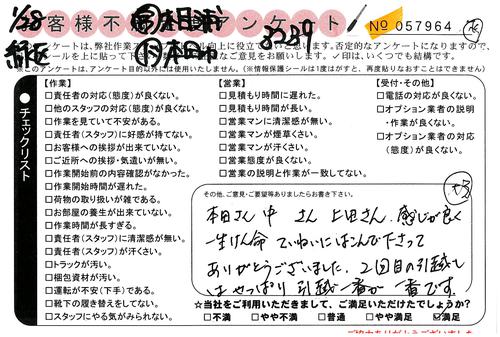 1/28
お客様不
アンケート
№ 057964
緑区
3329
ンケートは、弊社作業ア
否定的なアンケートになりますので、
ールを上に貼って下さ
なご意見をお願いします。✓印は、いくつでも結構です。
※このアンケートは、アンケート目的以外には使用いたしません。(※情報保護シールは1度はがすと、再度貼りなおすことはできません)
チェックリスト
【作業】
□責任者の対応(態度)が良くない。
□他のスタッフの対応(態度)が良くない。
□作業を見ていて不安がある。
□責任者(スタッフ)に好感が持てない。
□お客様への挨拶が出来ていない。
□ご近所への挨拶・気遣いが無い。
□作業開始前の内容確認がなかった。
□作業開始時間が遅れた。
□荷物の取り扱いが雑である。
□お部屋の養生が出来ていない。
□作業時間が長すぎる。
□責任者(スタッフ)に清潔感が無い。
□責任者(スタッフ)が汗くさい。
□トラックが汚い。
□梱包資材が汚い。
□運転が不安(下手)である。
□靴下の履き替えをしてない。
□スタッフにやる気がみられない。
【営業】
□見積もり時間に遅れた。
□見積もり時間が長い。
□営業マンに清潔感が無い。
□営業マンが煙草くさい。
□営業マンが汗くさい。
□営業態度が良くない。
□営業の説明と作業が一致してない。
【受付・その他】
□電話の対応が良くない。
□オプション業者の説明
・作業が良くない。
□オプション業者の対応
(態度)が良くない。
その他、ご意見・ご要望等ありましたらお書き下さい。
本田さん 中 さん 上田さん、感じが良く
一生けん命 ていねいにはこんで下さって
ありがとうございました。2回目の引越し
はやっぱり 引越一番が一番です!
☆当社をご利用いただきまして、ご満足いただけたでしょうか?
□不満 □やや不満 □普通 □やや満足 ☑満足
ご協力ありがとうございました